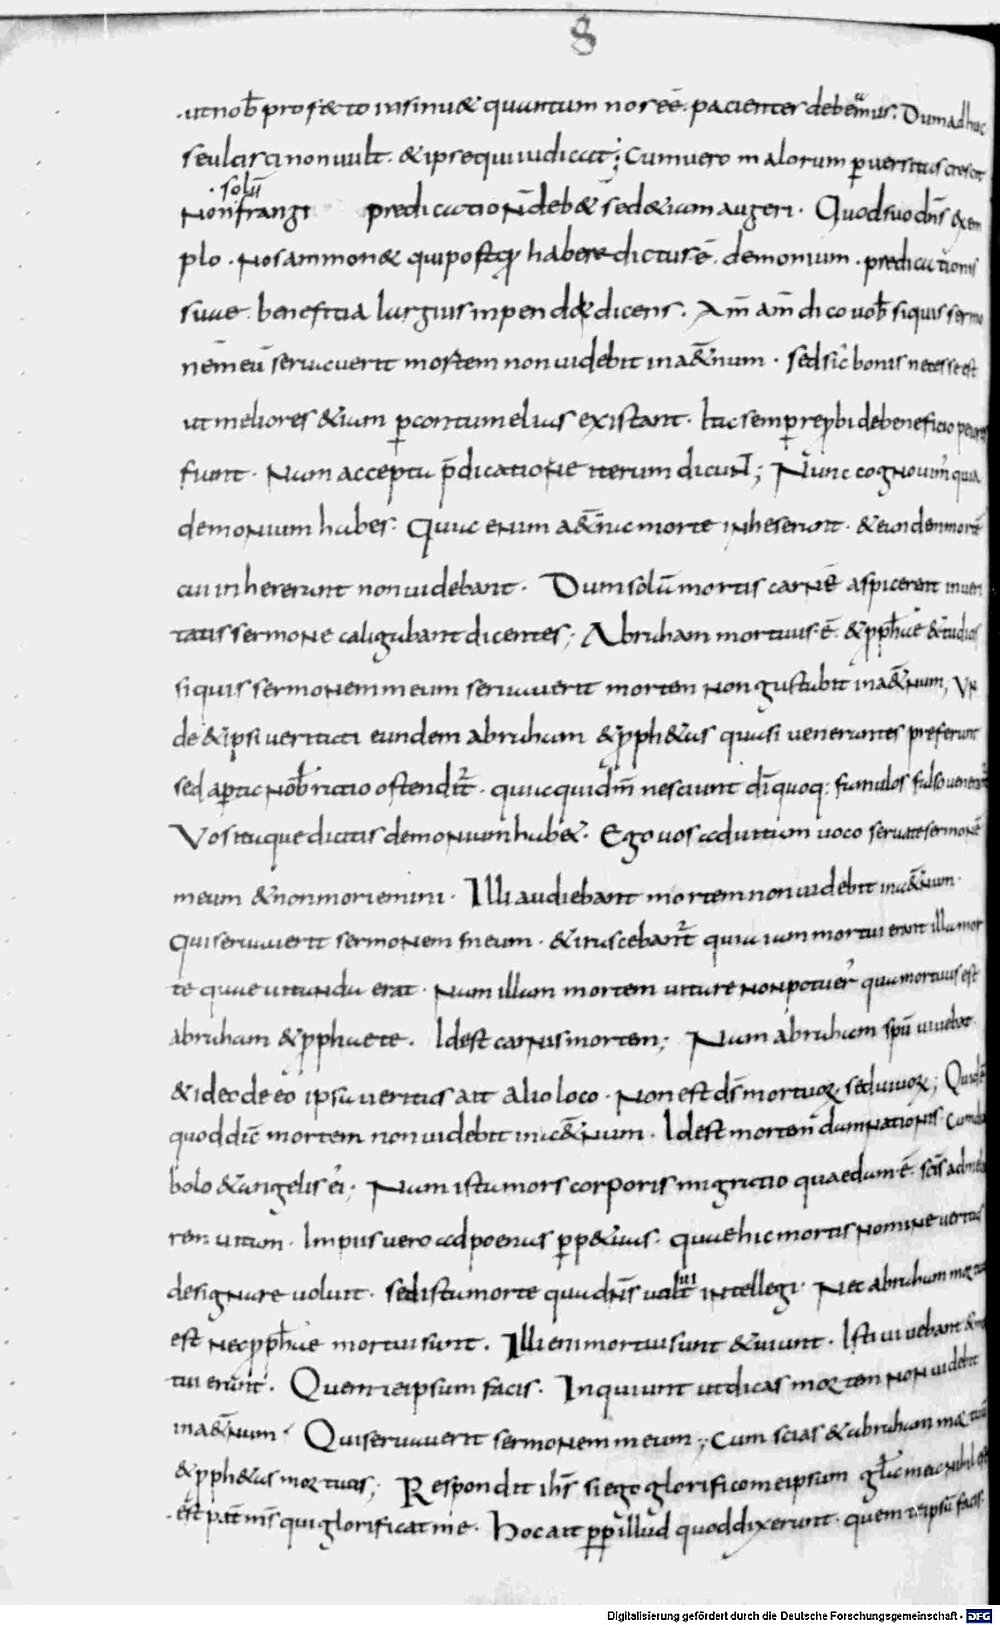 8
ut nob̄ prof&to insinu& quantum nos eē. pacienter debeamus. Dum adhuc
seulcisci non uult. & ipse qui iudicat; Cum uero malorum ꝑuersitas crescit
· solū
Non frangi predicatio N̄ deb& sed &iam augeri. Quod suo dn̄s exem
plo. Nos ammon& qui postꝗ habere dictus ē. demonium. predicationis
suae. beneficia largius inpendit dicens. Am̄ am̄ dico uob̄ siquis sermo
nem̄ eū seruauerit mortem non uidebit in a&̄num. sed sic̄ bonis necesse est
ut meliores &iam ꝑ contumelias existant. Ita semꝑ repbi de beneficio peiores
fiunt. Nam accepta p̄dicatione iterum dicunt; Nunc cognouim̄ quia
demonium habes. Quia enim a&̄nae morte inheserunt. & eandem mortē
cui inhererunt non uidebant. Dum solū mortis carnē aspicerent in ueri
tatis sermone caligabant dicentes; Abraham mortuus ē. & pph̄ae & tu dicis
siquis sermonem meum seruauerit mortem non gustabit in a&̄num, Un
de & ipsi ueritati eundem abraham & pph&as quasi uenerantes preferunt
sed aperta nob̄ ratio ostendit̄. quia qui dm̄ nesciunt dī quoq; famulos falso uenerant̄
Vos itaque dicitis demonium hab&. Ego uos ad uitam uoco seruate sermonē
meum & non moriemini. Illi audiebant mortem non uidebit in a&̄num.
qui seruauerit sermonem meum. & irascebant̄ quia iam mortui erant illa mor
te quae uitanda erat. Nam illam mortem uitare non potuer̄ qua mortuus est
abraham & pphaete. Id est carnis mortem; Nam abraham spū uiuebat
& ideo de eo ipsa ueritas ait alio loco. Non est ds̄ mortuoꝝ sed uiuoꝝ;
quod dic̄ mortem non uidebit in a&̄num. Id est mortem damnationis. Cum dia
bolo & angelis ei; Nam ista mors corporis migratio quaedam ē. scīs ad melio
rem uitam. Impiis uero ad poenas ꝑp&uas. quae hic mortis nomine ueritas
designare uoluit. sed ista morte qua dn̄s ualuit intellegi. Nec abraham moꝛtuus
est nec pph̄ae mortui sunt. Illi enī mortui sunt & uiunt. Isti uiuebant & moꝛ
tui erant. Quem te ipsum facis. Inquiunt ut dicas moꝛtem non uidebit
in a&̄num. Qui seruauerit sermonem meum; Cum scias & abraham moꝛtuū
& pph&as moꝛtuos; Respondit ih̄s si ego glorifico me ipsum gl̄a mea nihil est
est pat̄ ms̄ qui glorificat me. Hoc ait ꝓpt illud quod dixerunt. quem te ipsū facis.
Digitalisierung gefördert durch die Deutsche Forschungsgemeinschaft - DFG